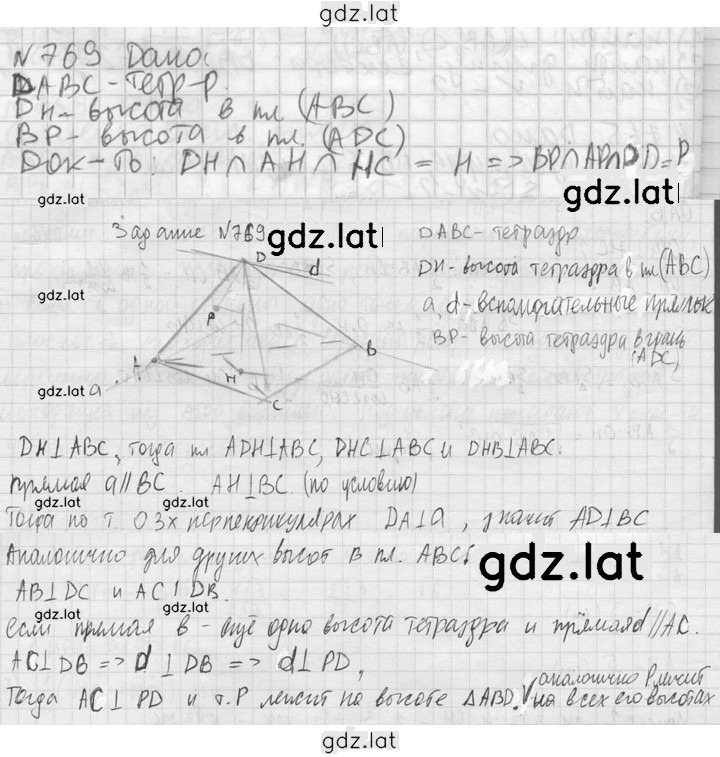 gdz.lat
N 769 Дано:
DABC - тетр-р.
DH - высота в пл. (ABC)
BP - высота в пл. (ADC)
Док-ть: DH∩AH∩HC = H => BP∩AP∩PD = P
gdz.lat
gdz.lat
Задание N769
gdz.lat
DABC - тетраэдр
D
d
DH - высота тетраэдра в пл (ABC)
gdz.lat
a, d - вспомогательные прямык
P
BP - высота тетраэдра в грань (ADC)
A
B
H
gdz.lat
a
C
DH⊥ABC, тогда пл ADH⊥ABC, DHC⊥ABC и DHB⊥ABC.
прямая a//BC. AH⊥BC (по условию)
gdz.lat
gdz.lat
Тогда по т. О 3х перпендикулярах DA⊥a, значит AD⊥BC
Аналогично для других высот в пл. ABC:
gdz.lat
gdz.lat
AB⊥DC и AC⊥DB.
gdz.lat
gdz.lat
если прямая в - ещё одна высота тетраэдра и прямая d//AC.
AC⊥DB => d⊥DB => d⊥PD,
аналогично P лежит
Тогда AC⊥PD и т.P лежит на высоте ΔABD. √ на всех его высотах
gdz.lat